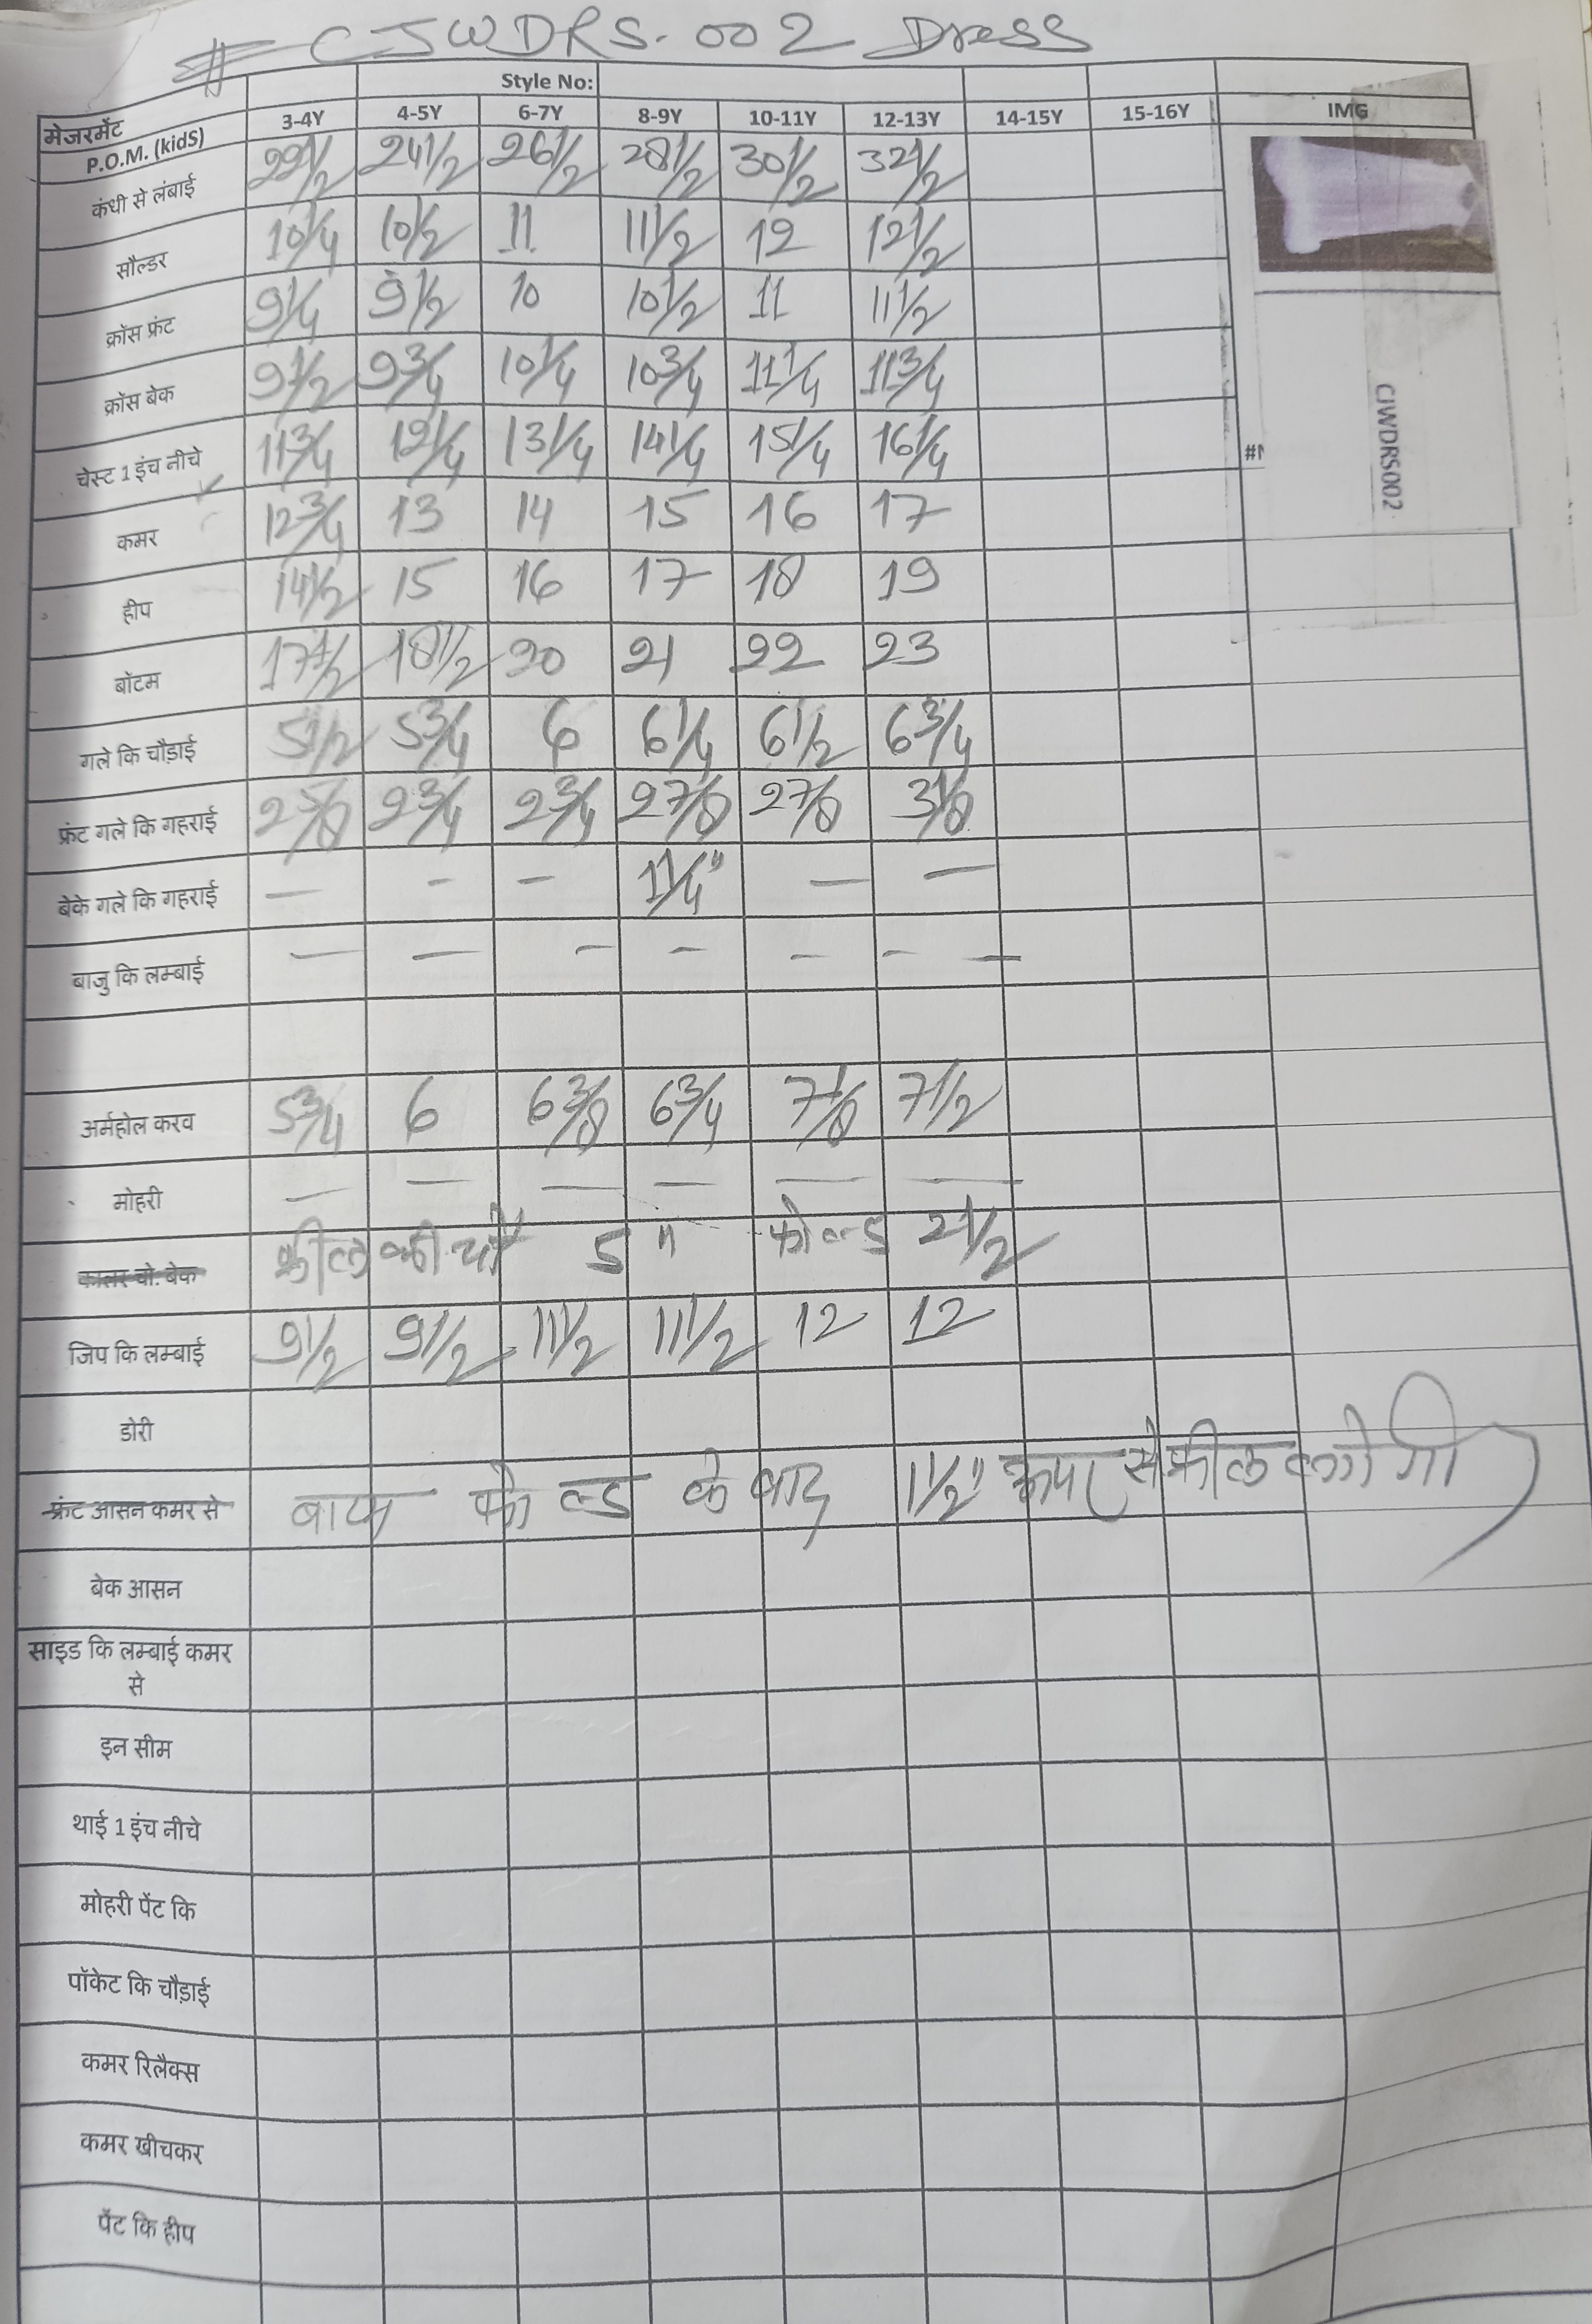 # CJWDRS.002 Dress
Style No:
मेजरमेंट P.O.M. (kidS) 3-4Y 4-5Y 6-7Y 8-9Y 10-11Y 12-13Y 14-15Y 15-16Y IMG
कंधी से लंबाई 22 1/2 24 1/2 26 1/2 28 1/2 30 1/2 32 1/2
सौल्डर 10 1/4 10 1/2 11 11 1/2 12 12 1/2
क्रॉस फ्रंट 9 1/4 9 1/2 10 10 1/2 11 11 1/2
क्रॉस बेक 9 1/2 9 3/4 10 1/4 10 3/4 11 1/4 11 3/4
चेस्ट 1 इंच नीचे 11 3/4 12 1/4 13 1/4 14 1/4 15 1/4 16 1/4
कमर 12 3/4 13 14 15 16 17
हीप 14 1/2 15 16 17 18 19
बॉटम 17 1/2 18 1/2 20 21 22 23
गले कि चौड़ाई 5 1/2 5 3/4 6 6 1/4 6 1/2 6 3/4
फ्रंट गले कि गहराई 2 5/8 2 3/4 2 3/4 2 7/8 2 7/8 3 1/8
बेके गले कि गहराई — - - 1 1/4" — —
बाजु कि लम्बाई — — - - - - —
अर्महोल करव 5 3/4 6 6 3/8 6 3/4 7 1/8 7 1/2
मोहरी — — — — — —
कालर चो. बेक फ्रील की चौ 5" फोल्ड 2 1/2
जिप कि लम्बाई 9 1/2 9 1/2 11 1/2 11 1/2 12 12
डोरी
फ्रंट आसन कमर से फोल्ड के बाद 1 1/2" ऊपर से फ्रील लगेगी
बेक आसन
साइड कि लम्बाई कमर
से
इन सीम
थाई 1 इंच नीचे
मोहरी पेंट कि
पॉकेट कि चौड़ाई
कमर रिलैक्स
कमर खीचकर
पेंट कि हीप
CJWDRS002